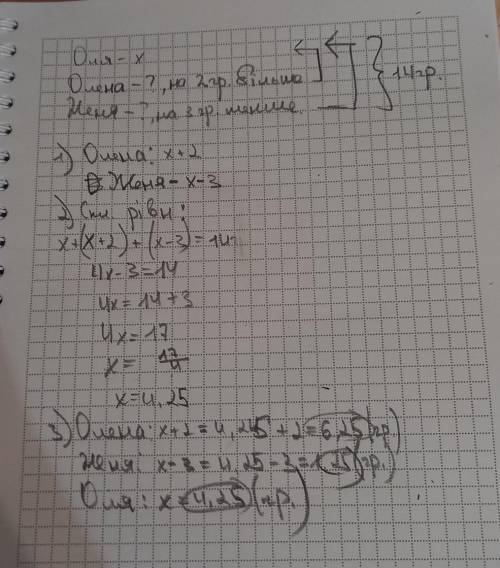 Оля - x
Олена - ?, на 2 гр. більше
Женя - ?, на 3 гр. менше.
14 гр.
1) Олена: x+2
Женя - x-3
2) Скл. рівн:
x+(x+2)+(x-3)=14
4x-3=14
4x=14+3
4x=17
x= 17/4
x=4,25
3) Олена: x+2=4,25+2=6,25 (гр.)
Женя: x-3=4,25-3=1,25 (гр.)
Оля: x=4,25 (гр.)